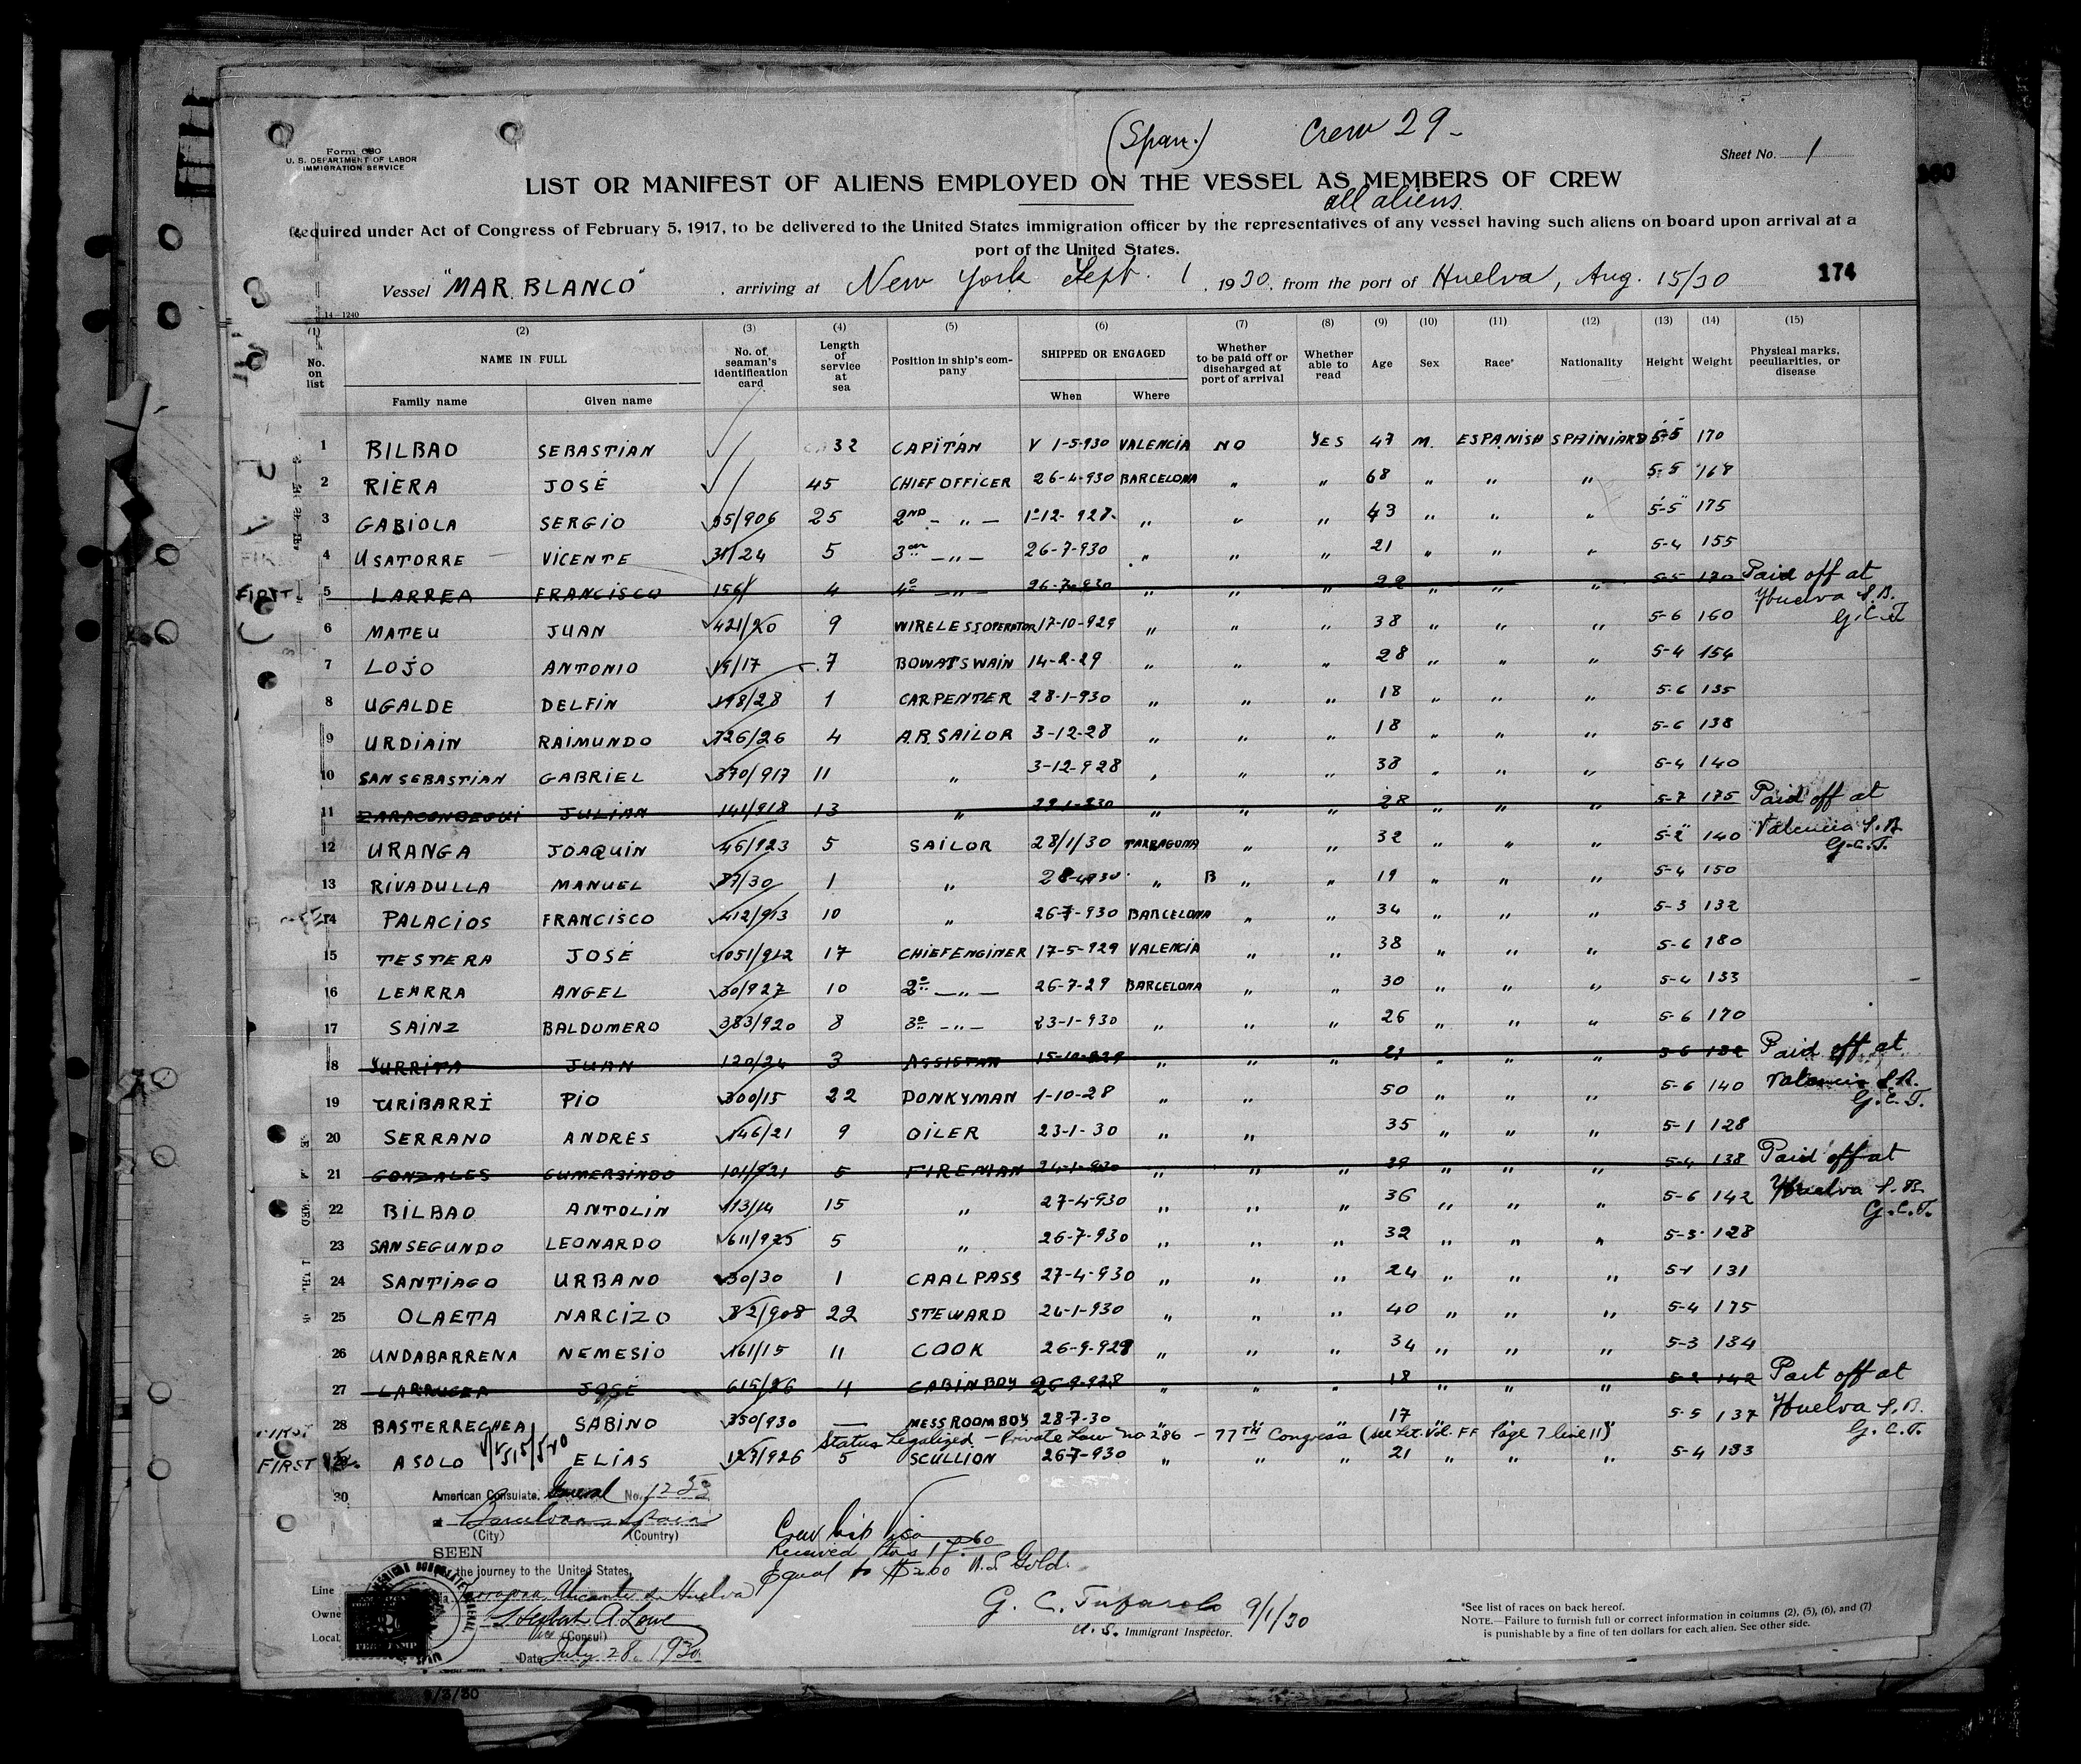 (Span.) Crew 29-
Form 680
U. S. DEPARTMENT OF LABOR
IMMIGRATION SERVICE
Sheet No. 1
LIST OR MANIFEST OF ALIENS EMPLOYED ON THE VESSEL AS MEMBERS OF CREW
all aliens.
Required under Act of Congress of February 5, 1917, to be delivered to the United States immigration officer by the representatives of any vessel having such aliens on board upon arrival at a
port of the United States.
Vessel "MAR BLANCO", arriving at New York Sept. 1, 1930, from the port of Huelva, Aug. 15/30 174
14-1240
(1) (2) (3) (4) (5) (6) (7) (8) (9) (10) (11) (12) (13) (14) (15)
No. on list NAME IN FULL No. of seaman's identification card Length of service at sea Position in ship's company SHIPPED OR ENGAGED Whether to be paid off or discharged at port of arrival Whether able to read Age Sex Race* Nationality Height Weight Physical marks, peculiarities, or disease
Family name Given name When Where
1 BILBAO SEBASTIAN 32 CAPITÁN 1-5-930 VALENCIA NO YES 47 M. ESPANISH SPAINIARD 5-5 170
2 RIERA JOSÉ 45 CHIEF OFFICER 26-4-930 BARCELONA " " 68 " " " 5-5 168
3 GABIOLA SERGIO 35/906 25 2ND - " - 1-12-928 " " " 43 " " " 5-5 175
4 USATORRE VICENTE 31/24 5 3er - " - 26-7-930 " " " 21 " " " 5-4 155
FIRST 5 LARREA FRANCISCO 156/ 4 4º - " - 26-7-930 " " " 22 " " " 5-5 170 Paid off at
Huelva S.B.
G.C.T.
6 MATEU JUAN 421/20 9 WIRELESS OPERATOR 17-10-929 " " " 38 " " " 5-6 160
7 LOJO ANTONIO 19/17 7 BOWATSWAIN 14-2-29 " " " 28 " " " 5-4 154
8 UGALDE DELFIN 198/28 1 CARPENTIER 28-1-930 " " " 18 " " " 5-6 135
9 URDIAIN RAIMUNDO 726/26 4 A.B. SAILOR 3-12-28 " " " 18 " " " 5-6 138
10 SAN SEBASTIAN GABRIEL 370/917 11 " 3-12-928 " " " 38 " " " 5-4 140
11 JULIAN 141/918 13 " " " " 28 " " " 5-7 175 Paid off at
Valencia S.B.
G.C.T.
12 URANGA JOAQUIN 46/923 5 SAILOR 28/1/30 TARRAGONA " " 32 " " " 5-2 140
13 RIVADULLA MANUEL 87/30 1 " 28-4-930 " B " " 19 " " " 5-4 150
14 PALACIOS FRANCISCO 412/913 10 " 26-7-930 BARCELONA " " 34 " " " 5-3 132
15 TESTERA JOSÉ 1051/912 17 CHIEF ENGINER 17-5-929 VALENCIA " " 38 " " " 5-6 180
16 LEARRA ANGEL 30/927 10 2º - " - 26-7-29 BARCELONA " " 30 " " " 5-4 133
17 SAINZ BALDOMERO 383/920 8 3º - " - 23-1-930 " " " 26 " " " 5-6 170
18 YURRITA JUAN 120/24 3 ASSISTAN 15-10-929 " " " 21 " " " 5-6 132 Paid off at
Valencia S.B.
G.C.T.
19 URIBARRI PIO 300/15 22 DONKYMAN 1-10-28 " " 50 " " " 5-6 140
20 SERRANO ANDRES 146/21 9 OILER 23-1-30 " " 35 " " " 5-1 128
21 GONZALES GUMERSINDO 101/921 5 FIREMAN 24-1-930 " " " 29 " " " 5-4 138 Paid off at
Huelva S.B.
G.C.T.
22 BILBAO ANTOLIN 113/14 15 " 27-4-930 " " " 36 " " " 5-6 142
23 SANSEGUNDO LEONARDO 611/925 5 " 26-7-930 " " " 32 " " " 5-3 128
24 SANTIAGO URBANO 30/30 1 CAALPASS 27-4-930 " " " 24 " " " 5-1 131
25 OLAETA NARCIZO 82/908 22 STEWARD 24-1-930 " " " 40 " " " 5-4 175
26 UNDABARRENA NEMESIO 161/15 11 COOK 26-9-928 " " " 34 " " " 5-3 134
27 JOSÉ 615/26 4 CABIN BOY 26-9-928 " " " 18 " " " 5-2 142 Part off at
Huelva S.B.
G.C.T.
FIRST 28 BASTERRECHEA SABINO 350/930 — MESS ROOM BOY 28-7-30 " " " 17 " " " 5-5 137
Status Legalized - Private Law No 286 - 77TH Congress (see Let. Vol. FF Page 7 line 11)
FIRST 29 ASOLO ELIAS 129/926 5 SCULLION 26-7-930 " " " 21 " " " 5-4 133
30
American Consulate General No. 1253
at Barcelona Spain
(City) (Country)
SEEN
the journey to the United States,
Tarragona, Alicante & Huelva
Herbert A. Lowe
Vice (Consul)
Date July 28, 1930.
Crew list Visa
Received Ptas 17.60
Equal to $2.00 U.S Gold.
Line
Owne
Local
G. C. Tufarolo 9/1/30
U.S. Immigrant Inspector.
*See list of races on back hereof.
NOTE.—Failure to furnish full or correct information in columns (2), (5), (6), and (7)
is punishable by a fine of ten dollars for each alien. See other side.